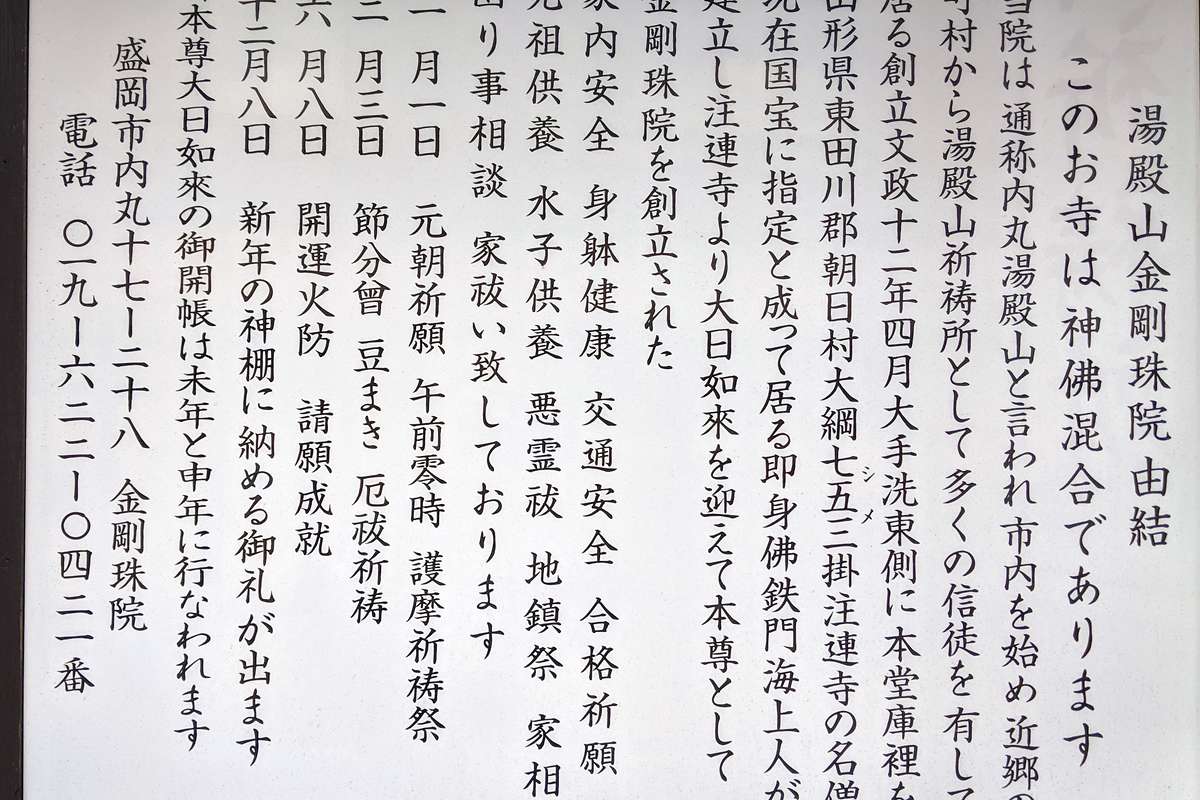 湯殿山金剛珠院由結
このお寺は神佛混合であります
当院は通称内丸湯殿山と言われ市内を始め近郷の
町村から湯殿山祈祷所として多くの信徒を有して
居る創立文政十二年四月大手洗東側に本堂庫裡を
山形県東田川郡朝日村大綱七五三掛注連寺の名僧
シメ
現在国宝に指定と成って居る即身佛鉄門海上人が
建立し注連寺より大日如來を迎えて本尊として
金剛珠院を創立された
家内安全 身躰健康 交通安全 合格祈願
先祖供養 水子供養 悪霊祓 地鎮祭 家相
困り事相談 家祓い致しております
一月一日 元朝祈願 午前零時 護摩祈祷祭
二月三日 節分曾 豆まき 厄祓祈祷
六月八日 開運火防 請願成就
十二月八日 新年の神棚に納める御礼が出ます
本尊大日如來の御開帳は未年と申年に行なわれます
盛岡市内丸十七ー二十八 金剛珠院
電話 〇一九ー六二二ー〇四二一番